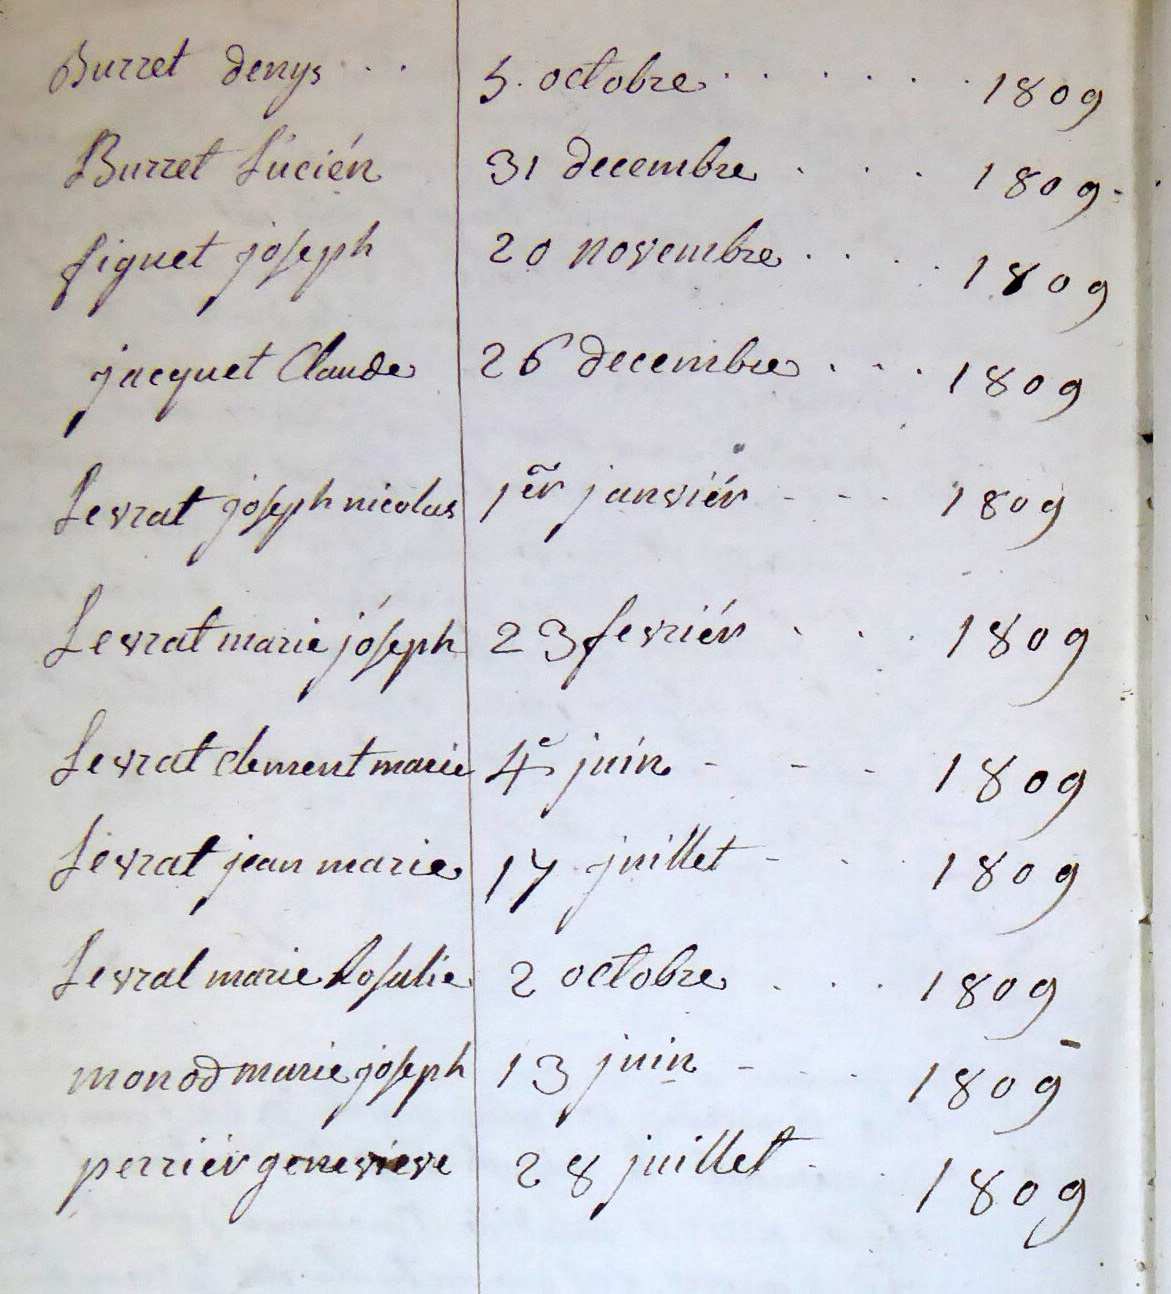 Burret denys . . 5. octobre . . . . . . 1809
Burret Lucién 31 decembre . . . 1809.
figuet joseph 20 novembre . . . . 1809
jacquet Claude 26 decembre . . . 1809
Levrat joseph nicolas 1er janviér - - - 1809
Levrat marie jóseph 23 fevriér . . . 1809
Levrat clement marie 4e juin - - - 1809
Levrat jean marie 17 juillet - . . 1809
Levrat marie Rosalie 2 octobre . . . 1809
monod marie joseph 13 juin - - - 1809
perriér genevieve 28 juillet - . . 1809